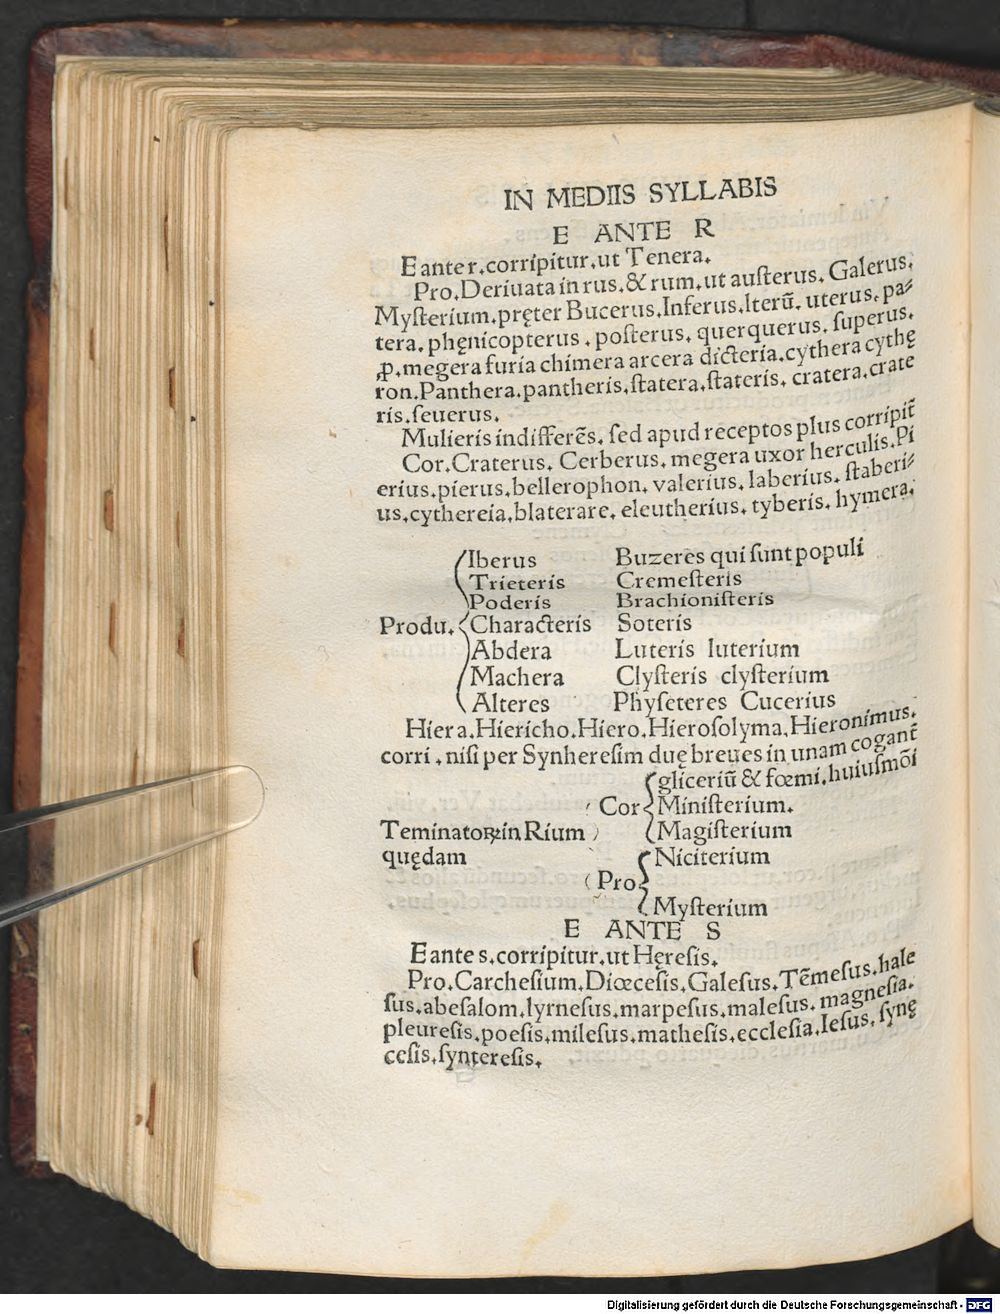 IN MEDIIS SYLLABIS
E ANTE R
E ante r.corripitur.ut Tenera.
Pro.Deriuata in rus.& rum.ut auſterus. Galerus.
Myſterium.pręter Bucerus.Inferus.Iterū. uterus. pa-
tera. phęnicopterus . poſterus. querquerus. ſuperus.
ꝓ.megera furia chimera arcera dicteria.cythera cythę
ron.Panthera.pantheris.ſtatera.ſtateris. cratera.crate
ris.ſeuerus.
Mulieris indifferēs. ſed apud receptos plus corripit̄
Cor.Craterus. Cerberus. megera uxor herculis.Pi
erius.pierus.bellerophon. valerius. laberius. ſtaberi-
us.cythereia.blaterare. eleutherius. tyberis. hymera.
Iberus Buzeres qui ſunt populi
Trieteris Cremeſteris
Poderis Brachioniſteris
Produ. Characteris Soteris
Abdera Luteris luterium
Machera Clyſteris clyſterium
Alteres Phyſeteres Cucerius
Hiera.Hiericho.Hiero.Hieroſolyma.Hieronimus.
corri . niſi per Synhereſim duę breues in unam cogant̄
gliceriū & fœmi.huiuſmōi
Cor Miniſterium.
Teminatoꝝ in Rium Magiſterium
quędam Niciterium
Pro
Myſterium
E ANTE S
E ante s.corripitur.ut Hęreſis.
Pro.Carcheſium.Diœceſis.Galeſus.Tēmeſus.hale
ſus.abeſalom.lyrneſus.marpeſus.maleſus. magneſia.
pleureſis.poeſis.mileſus.matheſis.eccleſia.Ieſus. ſynę
ceſis.ſyntereſis.
Digitalisierung gefördert durch die Deutsche Forschungsgemeinschaft - DFG